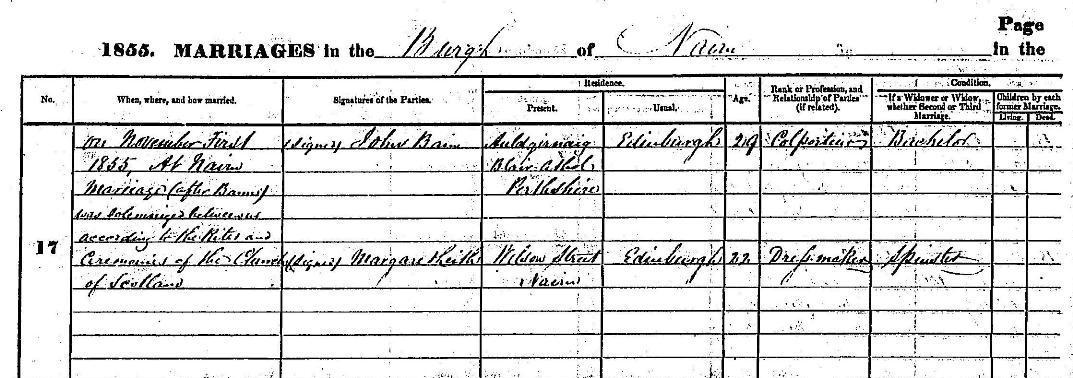 Page
1855. MARRIAGES in the Burgh of Nairn in the
Residence. Condition.
No. When, where, and how married. Signatures of the Parties. Present. Usual. Age. Rank or Profession, and Relationship of Parties (if related). If a Widower or Widow, whether Second or Third Marriage. Children by each former Marriage. Living. Dead.
on November First (signed) John Bain Auldgirnaig Edinburgh 29 Colporteur Bachelor
1855, At Nairn Blair Atholl
Marriage (after Banns) Perthshire
was solemnized between us
according to the Rites and
17 Ceremonies of the Church (signed) Margaret Keith Wilson Street Edinburgh 22 Dressmaker Spinster
of Scotland Nairn